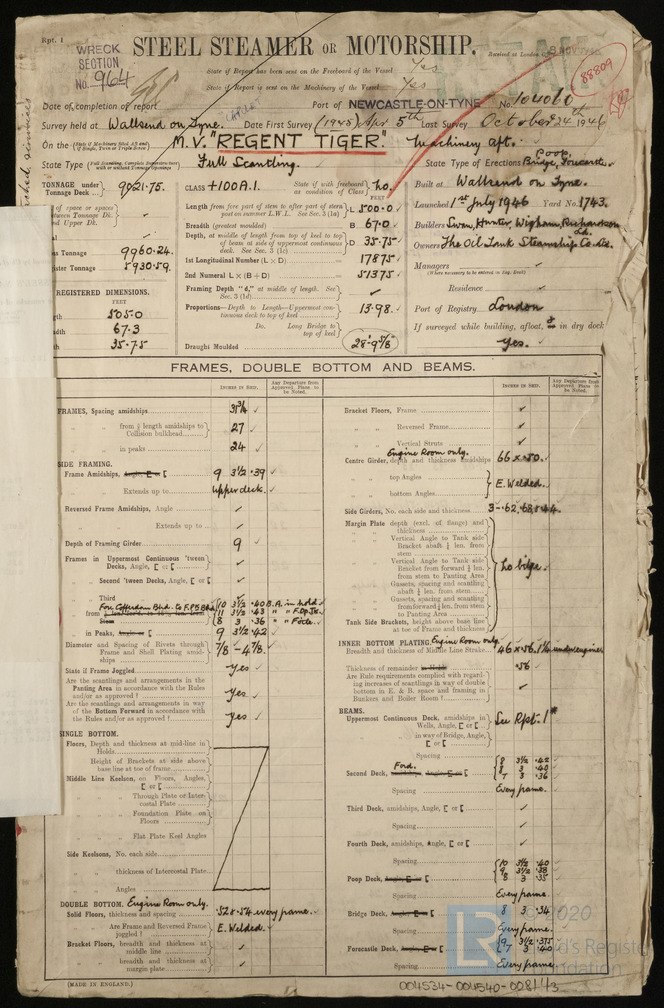 Rpt. 1
WRECK
SECTION
No. 964
STEEL STEAMER OR MOTORSHIP.
Received at London Office
State if Report has been sent on the Freeboard of the Vessel Yes
State if Report is sent on the Machinery of the Vessel Yes
88809
Date of completion of report
Port of NEWCASTLE-ON-TYNE No. 104060
Survey held at Wallsend on Tyne. Date First Survey (1945) Apr 5th Last Survey October 24th 1946
On the M.V. "REGENT TIGER." Machinery aft.
State Type Full Scantling.
State Type of Erections Poop, Bridge, Forecastle.
TONNAGE under Tonnage Deck 9021.75.
CLASS +100A.1. State if with freeboard as condition of Class No.
Built at Wallsend on Tyne.
Launched 1st July 1946 Yard No. 1743.
Builders Swan, Hunter, Wigham, Richardson Ld.
Owners The Oil Tank Steamship Co. Ld.
Managers
(Where necessary to be entered in Reg. Book)
Residence
Port of Registry London
If surveyed while building, afloat, or in dry dock
Yes.
of space or spaces
between Tonnage Dk.
nd Upper Dk.
ss Tonnage 9960.24.
gister Tonnage 5930.59.
REGISTERED DIMENSIONS.
FEET
gth 505.0
adth 67.3
th 35.75
Length from fore part of stem to after part of stern post on summer L.W.L. See Sec. 3 (1a) L 500.0
Breadth (greatest moulded) B 67.0
Depth, at middle of length from top of keel to top of beam at side of uppermost continuous deck. See Sec. 3 (1c) D 35.75
1st Longitudinal Number (L × D) 17875
2nd Numeral L × (B + D) 51375
Framing Depth "d," at middle of length. See Sec. 3 (1d)
Proportions—Depth to Length—Uppermost continuous deck to top of keel 13.98.
Do. Long Bridge to top of keel
Draught Moulded 28'-9 5/8"
FRAMES, DOUBLE BOTTOM AND BEAMS.
INCHES IN SHIP.
Any Departure from Approved Plans to be Noted.
FRAMES, Spacing amidships 31 3/4
from 3/5 length amidships to Collision bulkhead 27
in peaks 24
SIDE FRAMING.
Frame Amidships, Angle, [ or [ 9 3 1/2 .39
Extends up to Upper deck.
Reversed Frame Amidships, Angle
Extends up to
Depth of Framing Girder 9
Frames in Uppermost Continuous 'tween Decks, Angle, [ or [
Second 'tween Decks, Angle, [ or [
Third
from Fore Cofferdam Bhd. to F.P.S Bhd. 10 3 1/2 .40 B.A. in hold.
11 3 1/2 .43 " " F.Dp.Tk.
8 3 .36 " " F'ocle.
in Peaks, Angle or [ 9 3 1/2 .42
Diameter and Spacing of Rivets through Frame and Shell Plating amidships 7/8 - 4 7/8.
State if Frame Joggled Yes
Are the scantlings and arrangements in the Panting Area in accordance with the Rules and/or as approved? Yes
Are the scantlings and arrangements in way of the Bottom Forward in accordance with the Rules and/or as approved? Yes
SINGLE BOTTOM.
Floors, Depth and thickness at mid-line in Holds
Height of Brackets at side above base line at toe of frame
Middle Line Keelson, on Floors, Angles, [ or [
Through Plate or Intercostal Plate
Foundation Plate on Floors
Flat Plate Keel Angles
Side Keelsons, No. each side
thickness of Intercostal Plate
Angles
DOUBLE BOTTOM. Engine Room only.
Solid Floors, thickness and spacing .52 & .54 every frame.
Are Frame and Reversed Frame joggled? E. Welded.
Bracket Floors, breadth and thickness at middle line
breadth and thickness at margin plate
Bracket Floors, Frame
Reversed Frame
Vertical Struts
Engine Room only.
Centre Girder, depth and thickness amidships 66 × .50.
top Angles
bottom Angles
E. Welded.
Side Girders, No. each side and thickness 3 - .62, .68 & .44.
Margin Plate depth (excl. of flange) and thickness
Vertical Angle to Tank side Bracket abaft 1/4 len. from stem
Vertical Angle to Tank side Bracket from forward 1/4 len. from stem to Panting Area
Gussets, spacing and scantling abaft 1/4 len. from stem
Gussets, spacing and scantling from forward 1/4 len. from stem to Panting Area
No bilge.
Tank Side Brackets, height above base line at toe of Frame and thickness
INNER BOTTOM PLATING. Engine Room only.
Breadth and thickness of Middle Line Strake 46 × .56. 1 1/4 under engines
Thickness of remainder .56
Are Rule requirements complied with regarding increases of scantlings in way of double bottom in E. & B. space and framing in Bunkers and Boiler Room?
BEAMS.
Uppermost Continuous Deck, amidships in Wells, Angle, [ or [ See Rpt. 1*
in way of Bridge, Angle, [ or [
Spacing
Second Deck, Ford. 8 3 1/2 .42
8 3 .40
7 3 .36
Spacing Every frame.
Third Deck, amidships, Angle, [ or [
Spacing
Fourth Deck, amidships, Angle, [ or [
Spacing
Poop Deck, Angle, [ or [ 10 3 1/2 .40
9 3 1/2 .38
8 3 .35
Spacing Every frame.
Bridge Deck, Angle, [ or [ 8 3 .34
Spacing Every frame.
Forecastle Deck, Angle, [ or [ 9 3 1/2 .375
7 3 .40
Spacing Every frame.
(MADE IN ENGLAND.)
© 2020
Lloyd's Register
Foundation
004534-004540-0081 1/3